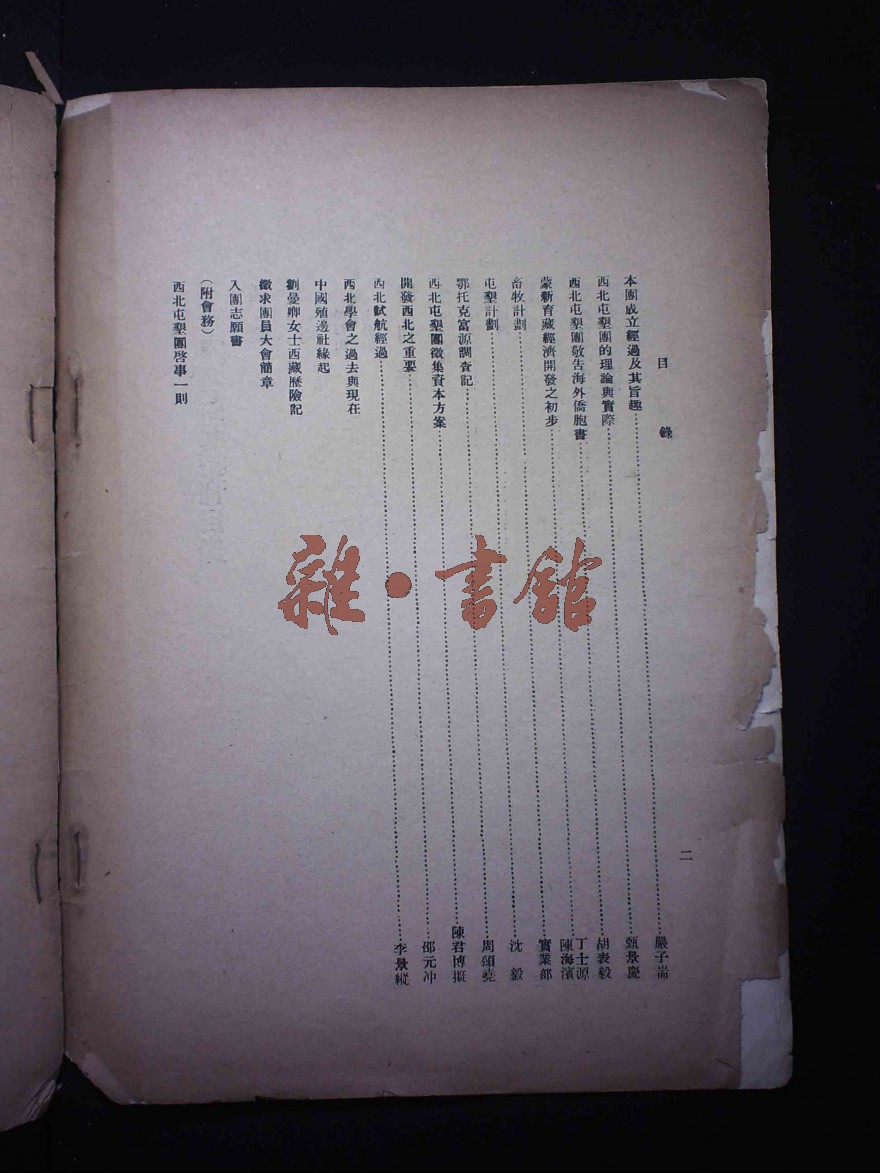 目錄
二
本團成立經過及其旨趣……嚴子
西北屯墾團的理論與實際……甄景慶
西北屯墾團敬告海外僑胞書……胡表毅
蒙新育藏經濟開發之初步……丁士源 陳海濱
畜牧計劃……實業部
屯墾計劃……沈毅
鄂托克富源調查記……周頌堯
西北屯墾團徵集資本方案……陳君博擬
開發西北之重要……邵元冲
西北試航經過……李景縱
西北學會之過去與現在
中國殖邊社緣起
劉曼卿女士西藏歷險記
徵求團員大會簡章
入團志願書
(附會務)
西北屯墾團啓事一則
雜·書館